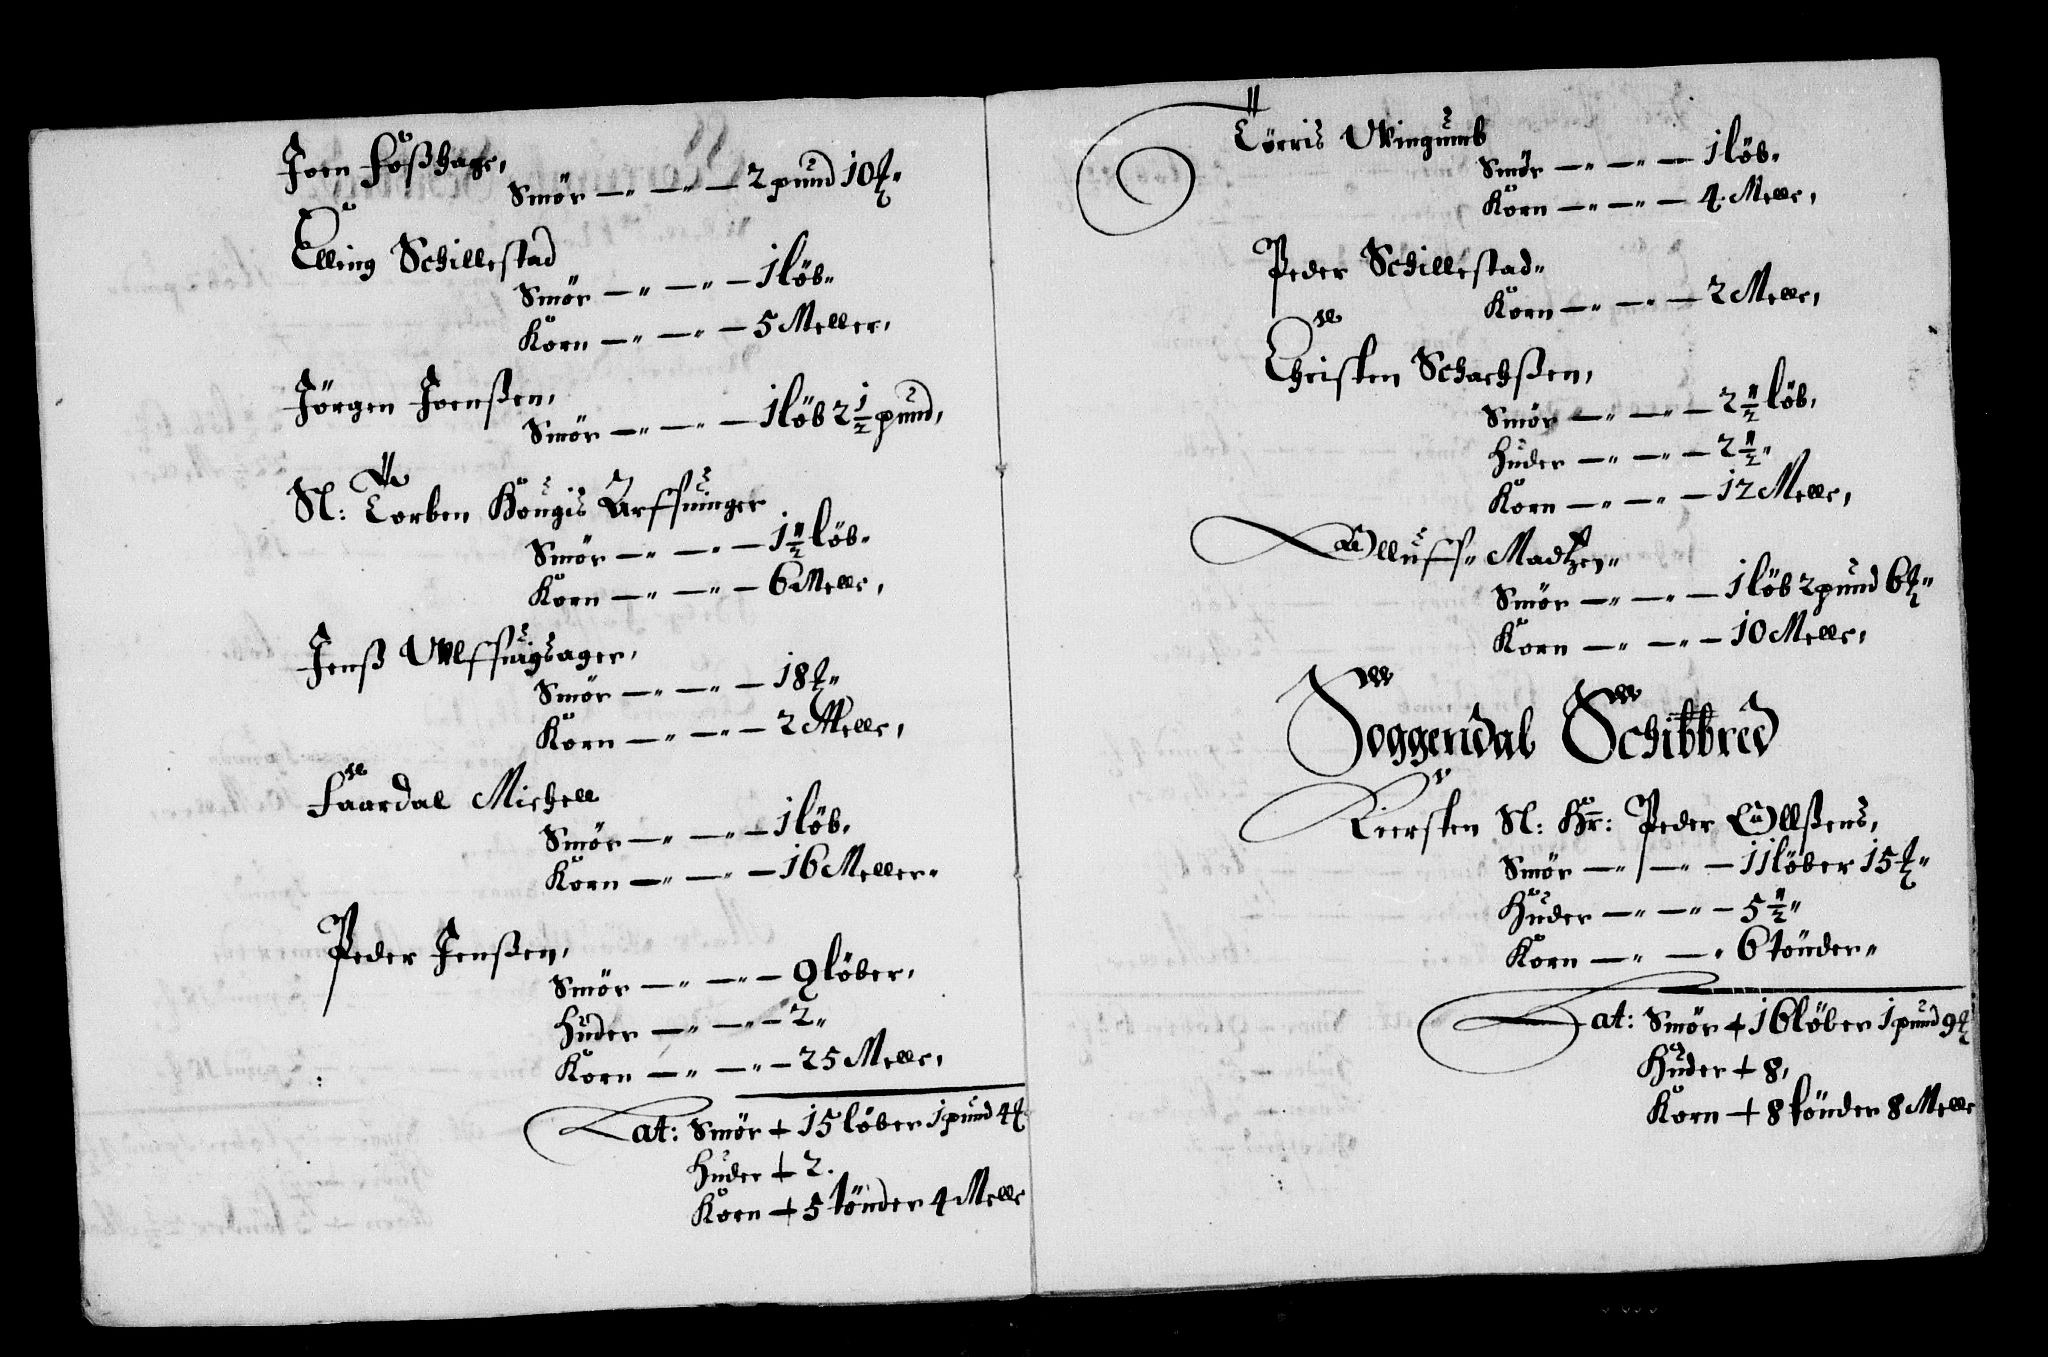 Joen Foßhage,
Smör — " — " — 2 pund 10 ℔ "
Elling Schillestad
Smör — " — " — 1 löb "
Korn — " — " — 5 Meller,
Jörgen Joenßen,
Smör — " — " — 1 löb 2 1/2 pund,
Sl: Torben Kongis Arffuinger
Smör — " — " — 1 1/2 löb "
Korn — " — " — 6 Melle,
Jenß
Smör — " — " — 18 ℔ "
Korn — " — " — 2 Melle,
Faardal Michell
Smör — " — " — 1 löb,
Korn — " — " — 16 Meller "
Peder Jenßen,
Smör — " — " — 9 löber,
Huder — " — " — 2 "
Korn — " — " — 25 Melle,
Lat: Smör + 15 löber 1 pund 4 ℔
Huder + 2.
Korn + 5 tönder 4 Melle
Törris Wingumb
Smör — " — " — 1 löb "
Korn — " — " — 4 Melle,
Peder Schillestad "
Korn — " — " — 2 Melle,
Christen Schachßen,
Smör — " — " — 2 1/2 löb,
Huder — " — " — 2 1/2 "
Korn — " — " — 12 Melle,
Olluff " Madtzen "
Smör — " — " — 1 löb 2 pund 6 ℔ "
Korn — " — " — 10 Melle,
Soggendal Schibbred
Kiersten Sl: Hr: Peder Ollßens,
Smör — " — " — 11 löber 15 ℔ "
Huder — " — " — 5 1/2 "
Korn — " — " 6 tönder "
Lat: Smör + 16 löber 1 pund 9 ℔
Huder + 8,
Korn + 8 tönder 8 Melle